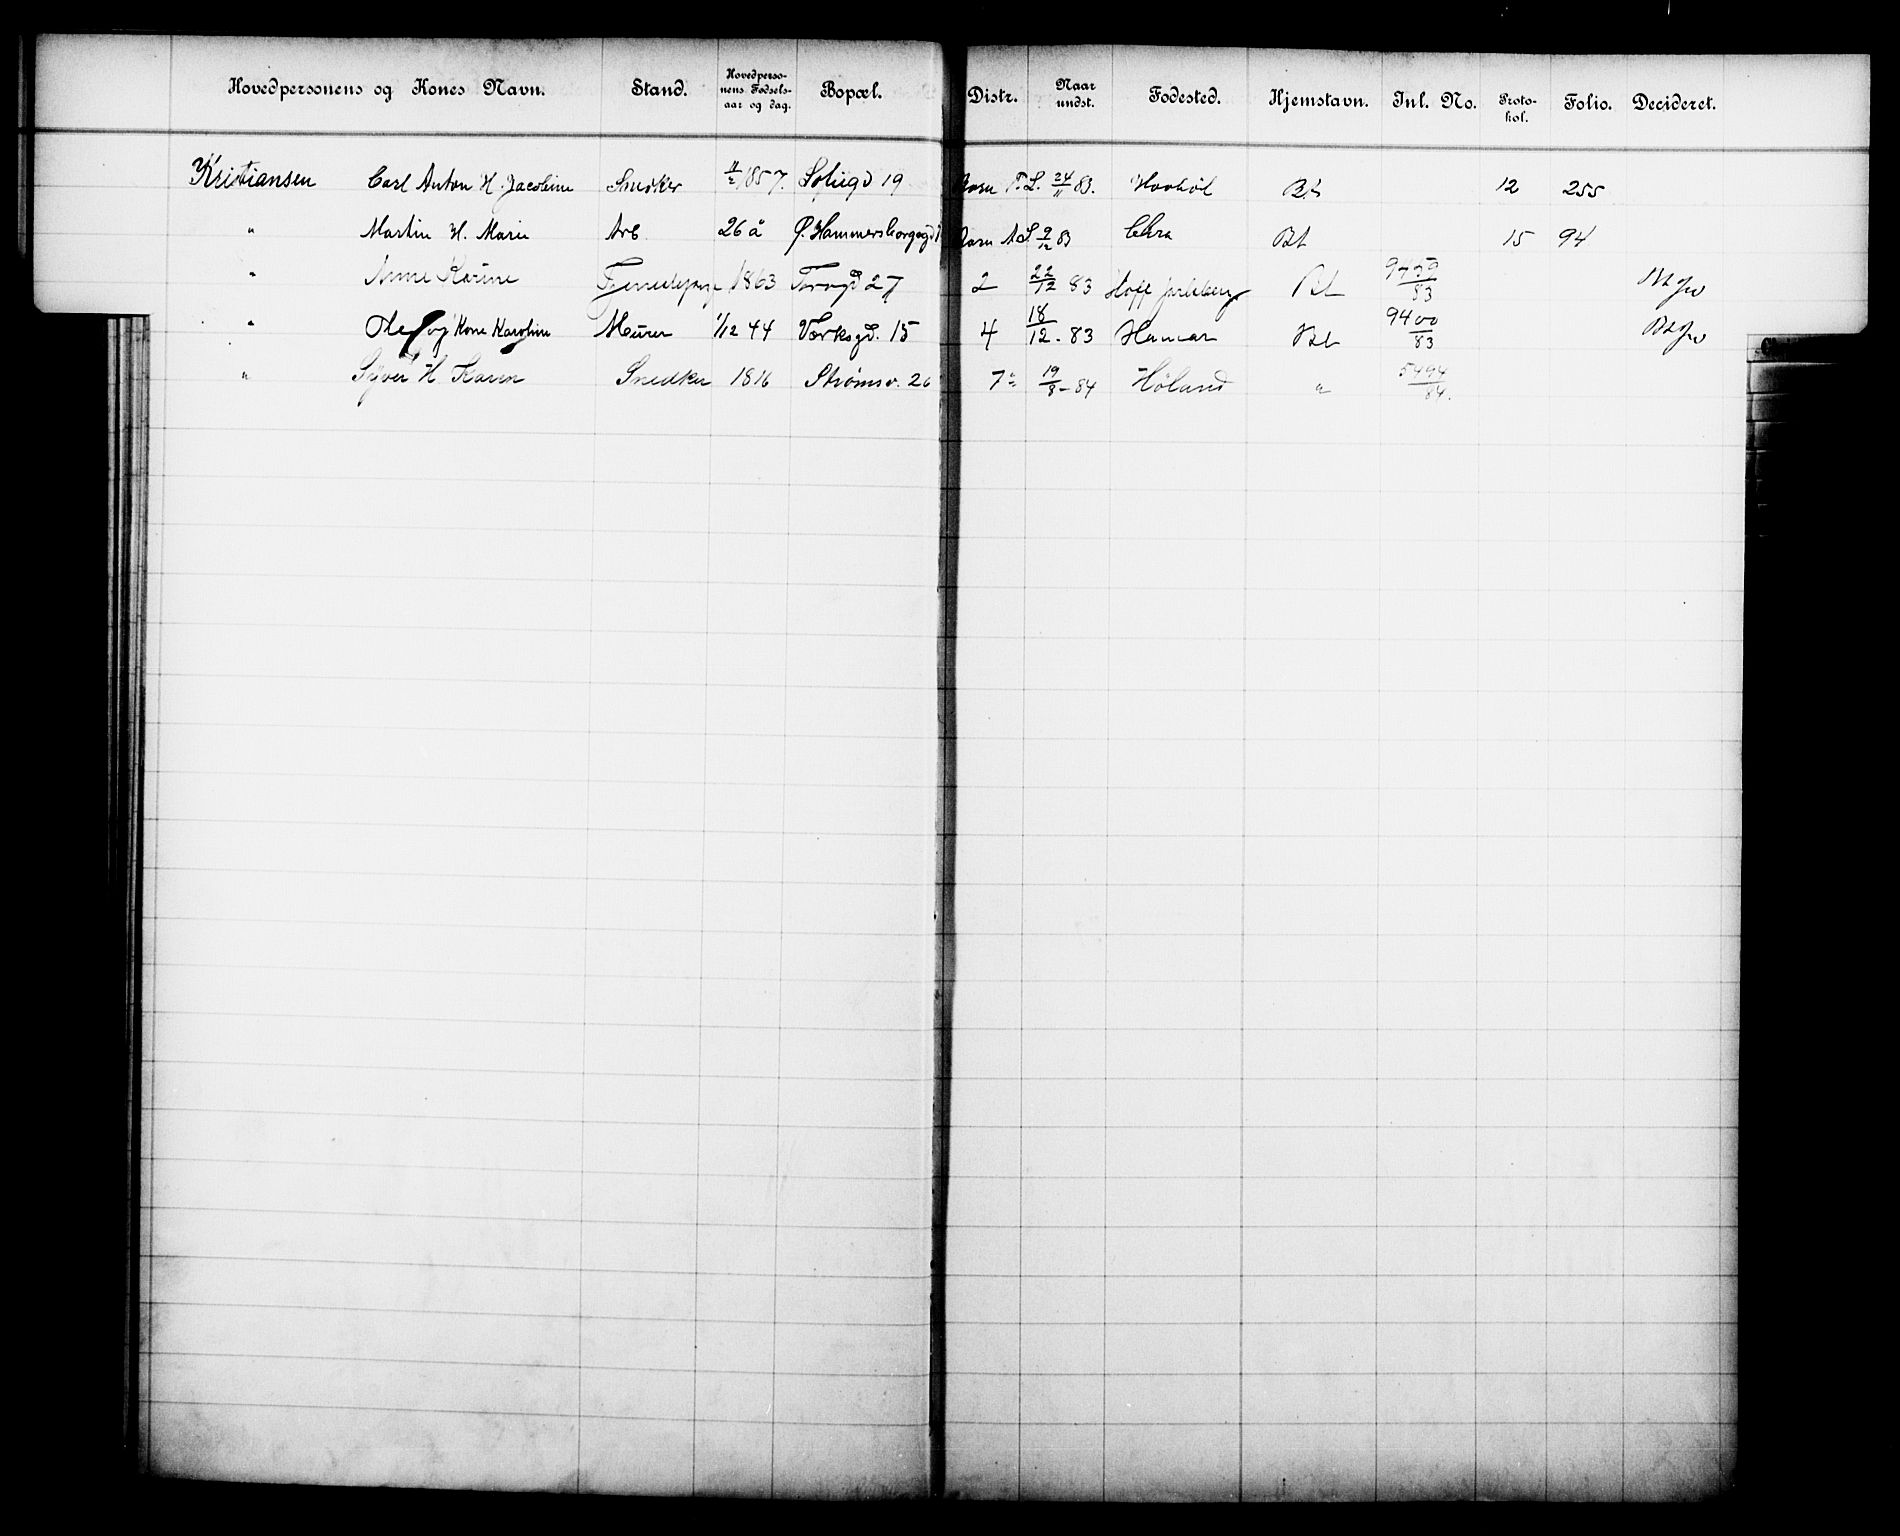 Hovedpersonens og Kones Navn. Stand. Hovedpersonens Fødselsaar og dag. Bopæl. Distr. Naar undst. Fødested. Hjemstavn. Inl. No. Protokol. Folio. Decideret.
Kristiansen Carl Anton H. Jacobine Snedker 1857. 19 24/11 83. 12 255
" Martin H. Marie Arb. 26 å Ø. Hammersborggd 9/12 83 Chra 15 94
" Anne Karine Tjenestepige 1863 Torvgd 27 2 22/12 83 Hoff Jarlsberg 9459/83
" Ole og Kone Karoline Murer 1/12 44 Værksgd. 15 4 18/12 - 83 Hamar 9400/83
" Syver H Karen Snedker 1816 Strømsv. 26 7 19/8 - 84 Høland " 5494/84.